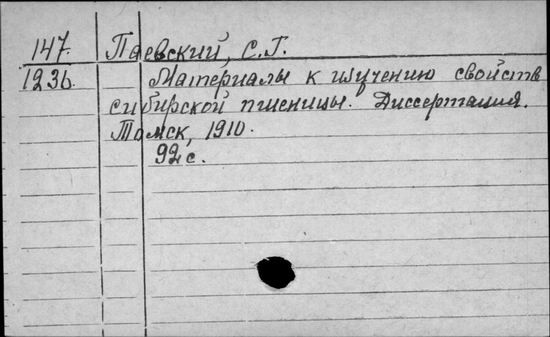 147. Паевский, С.Г.
1236. Материалы к изучению свойств
сибирской пшеницы. Диссертация.
Томск, 1910.
92 с.